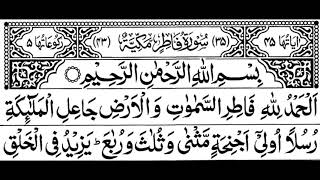 اٰیَاتُهَا ٤٥ (٣٥) سُوْرَةُ فَاطِرٍ مَكِّيَّةٌ (٤٣) رُكُوْعَاتُهَا ٥
بِسْمِ اللّٰهِ الرَّحْمٰنِ الرَّحِيْمِ
اَلْحَمْدُ لِلّٰهِ فَاطِرِ السَّمٰوٰتِ وَالْاَرْضِ جَاعِلِ الْمَلٰٓئِكَةِ
رُسُلًا اُولِيْٓ اَجْنِحَةٍ مَّثْنٰى وَثُلٰثَ وَرُبٰعَ ؕ يَزِيْدُ فِى الْخَلْقِ